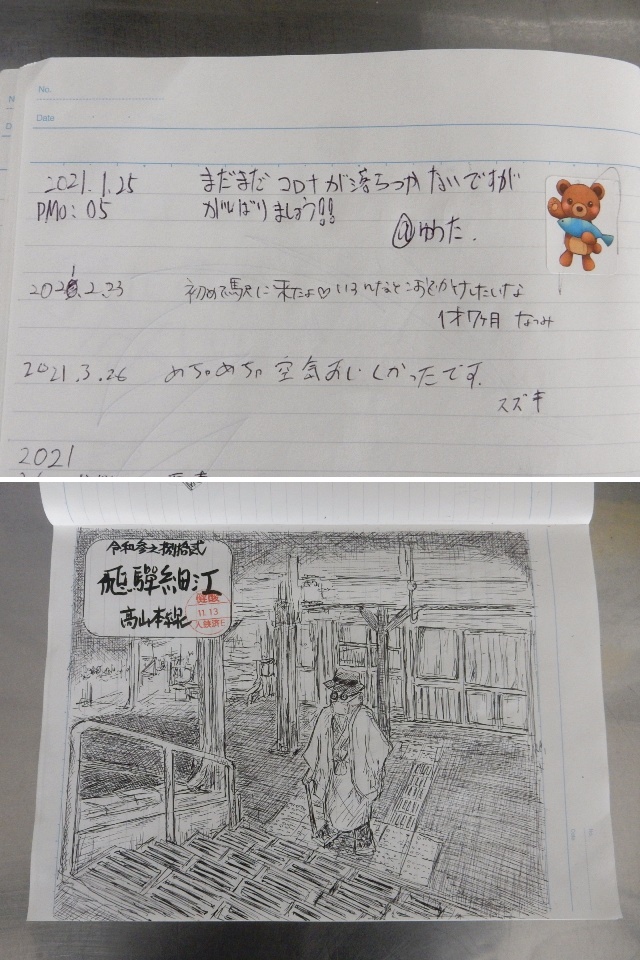 No.
Date
2021.1.25 まだまだ コロナが落ちつかないですが
PM0:05 がんばりましょう!!
@ゆうた.
2021.2.23 初めて駅に来たよ♡いろんなとこおでかけしたいな
1才7ヶ月 なつみ
2021.3.26 めちゃめちゃ 空気おいしかったです.
スズキ
2021
令和参之捌拾弐
飛騨細江
高山本線
11.13